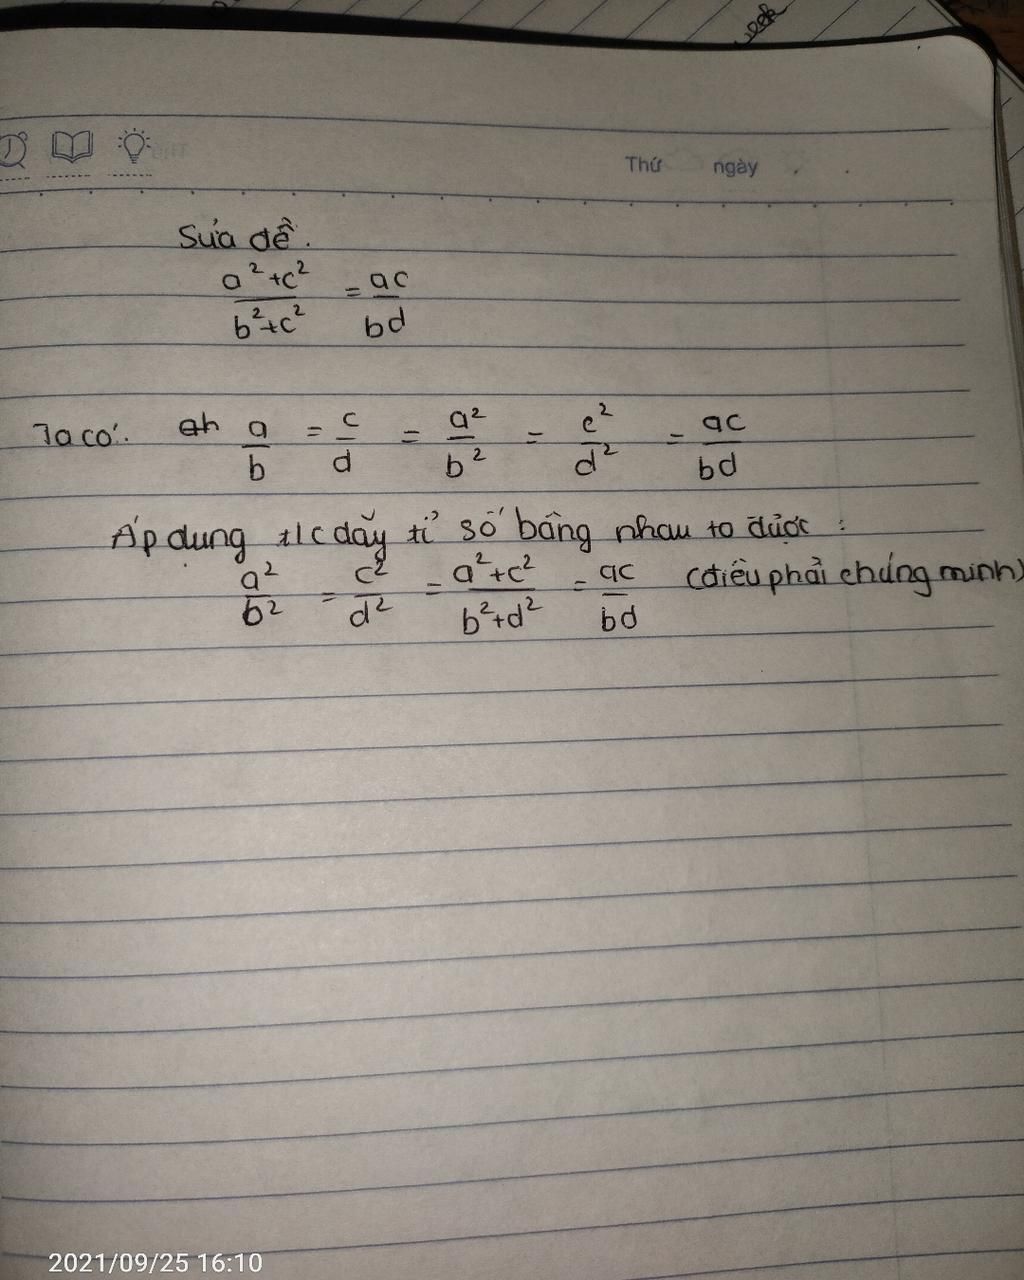 Thứ ngày
Sửa đề.
a²+c² / b²+c² = ac / bd
Ta có: a/b = c/d = a²/b² = c²/d² = ac/bd
Áp dụng t/c dãy tỉ số bằng nhau ta được :
a²/b² = c²/d² = a²+c² / b²+d² = ac/bd (điều phải chứng minh)
2021/09/25 16:10